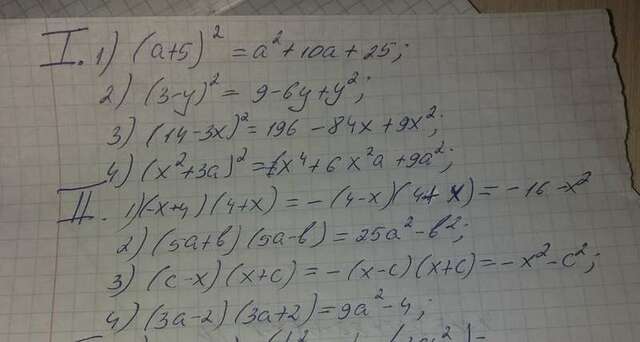 I. 1) (a+5)² = a² + 10a + 25;
2) (3-y)² = 9-6y+y²;
3) (14-3x)² = 196 - 84x + 9x²;
4) (x²+3a)² = x⁴ + 6x²a + 9a²;
II. 1) (-x+4)(4+x) = -(4-x)(4+x) = -16-x²
2) (5a+b)(5a-b) = 25a²-b²;
3) (c-x)(x+c) = -(x-c)(x+c) = -x²-c²;
4) (3a-2)(3a+2) = 9a²-4;